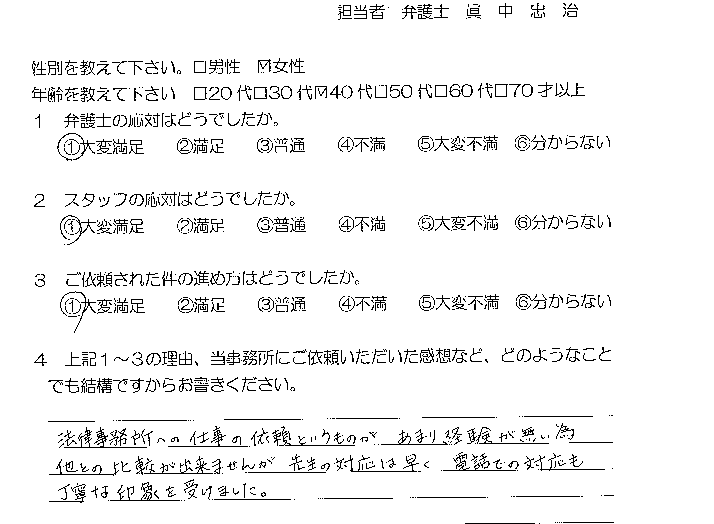 担当者 弁護士 眞 中 忠 治
性別を教えて下さい。☐男性 ☑女性
年齢を教えて下さい ☐20代☐30代☑40代☐50代☐60代☐70才以上
1 弁護士の応対はどうでしたか。
①大変満足 ②満足 ③普通 ④不満 ⑤大変不満 ⑥分からない
2 スタッフの応対はどうでしたか。
①大変満足 ②満足 ③普通 ④不満 ⑤大変不満 ⑥分からない
3 ご依頼された件の進め方はどうでしたか。
①大変満足 ②満足 ③普通 ④不満 ⑤大変不満 ⑥分からない
4 上記1~3の理由、当事務所にご依頼いただいた感想など、どのようなこと
でも結構ですからお書きください。
法律事務所への仕事の依頼というものが あまり経験が無い為
他との比較が出来ませんが 先生の対応は早く 電話での対応も
丁寧な印象を受けました。